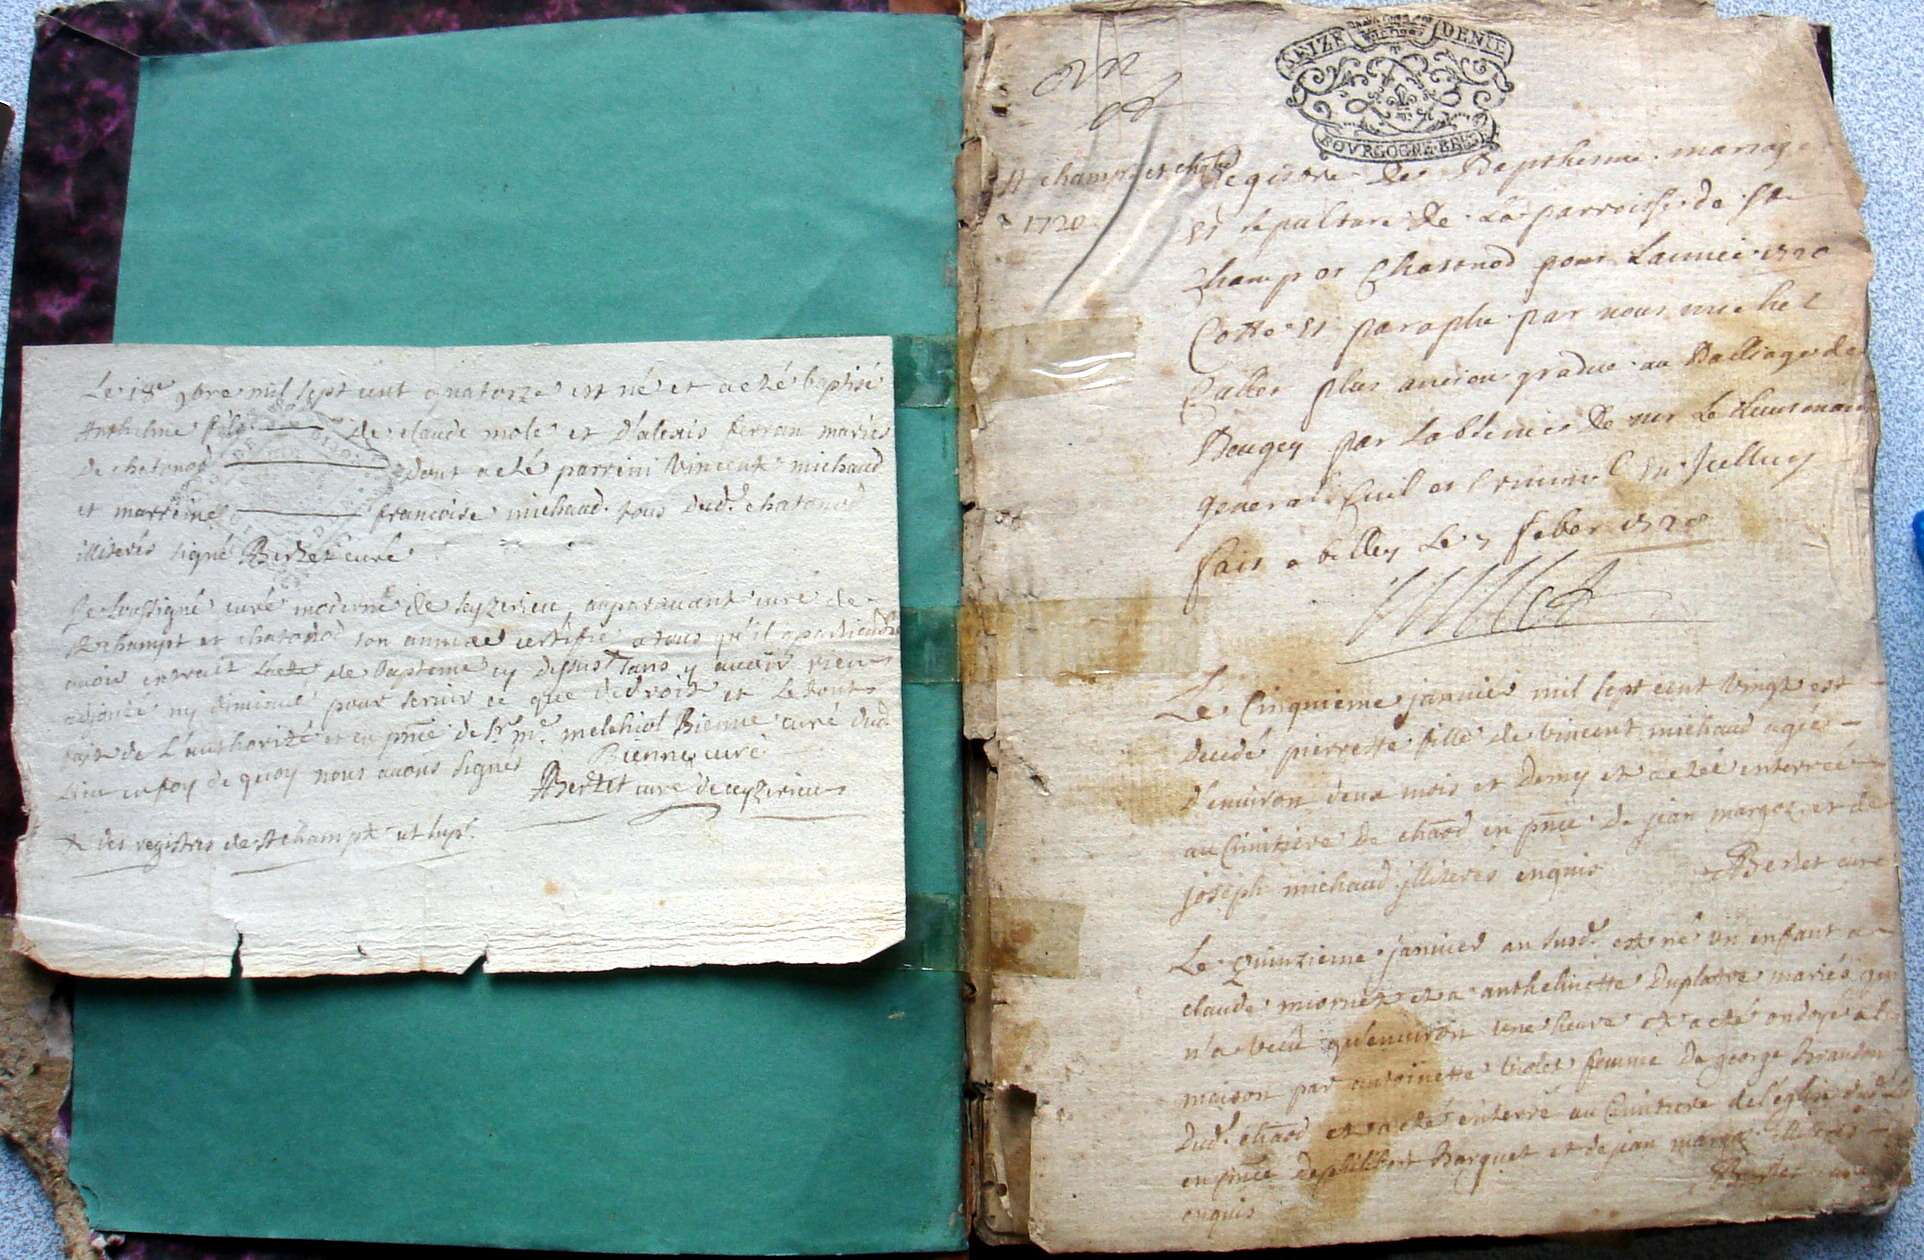 Le 18e 9bre mil sept cent quatorze est né et a eté baptisé
Anthelme fils de claude mole et d'alexis ferran mariés
de chatonod dont a eté parrein Vincent michaud
et marreine francoise michaud tous dud. chatonod
illiterés signé Bertet curé
Je soussigné curé moderne de seyzerieu, auparavant curé de
St champt et chatonod son annexe certifie a tous qu'il apartiendra
avoir extrait l'acte de bapteme cy dessus + sans y avoir rien
adjouté ny diminué pour servir ce que de droit et le tout
fait de l'authorité et en pnce de Sr mre melchiol Bienne curé dud.
lieu en foy de quoy nous avons signés Bienne curé
Bertet curé de ceyzerieu
+ des registres de St champt ut supr.
Un
St champt et chatod
1720
SEIZE DENIE
BOVRGOGNE BRESSE
Registre des Bapthesme mariage
et sepulture de La parroisse de St
Champ et Chatonod pour Lannée 1720
Cotté et paraphé par nous michel
plus ancien gradué au Balliage de
Bougey par Labsence de mr Le Lieutenant
general Civil et Criminel
fait a belley le 7 feber 1720
Le Cinquieme janvier mil sept cent vingt est
decedé pierrette fille de vincent michaud agée
d'environ deux mois et demy et a eté enterrée
au Cimitiere de chaod en pnce de jean margot et de
joseph michaud illiterés enquis Bertet curé
Le quinzieme janvier an susd. est né un enfant a
claude miornet et a anthelmette Duplatre mariés qui
n'a vecu qu'environ une heure et a eté ondoyé a la
maison par antoinette violet femme de george Brandon
dud. chaod et a eté enterré au Cimitiere de l'église dud.
en pnce de philibert Barquet et de jean margot illiterés
enquis Bertet curé